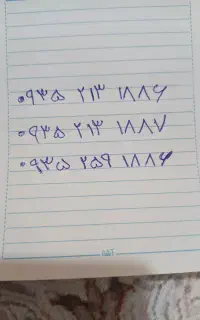 ۰۹۳۵ ۲۱۳ ۱۸۸۶
۰۹۳۵ ۲۱۳ ۱۸۸۷
۰۹۳۵ ۲۵۹ ۱۸۸۶